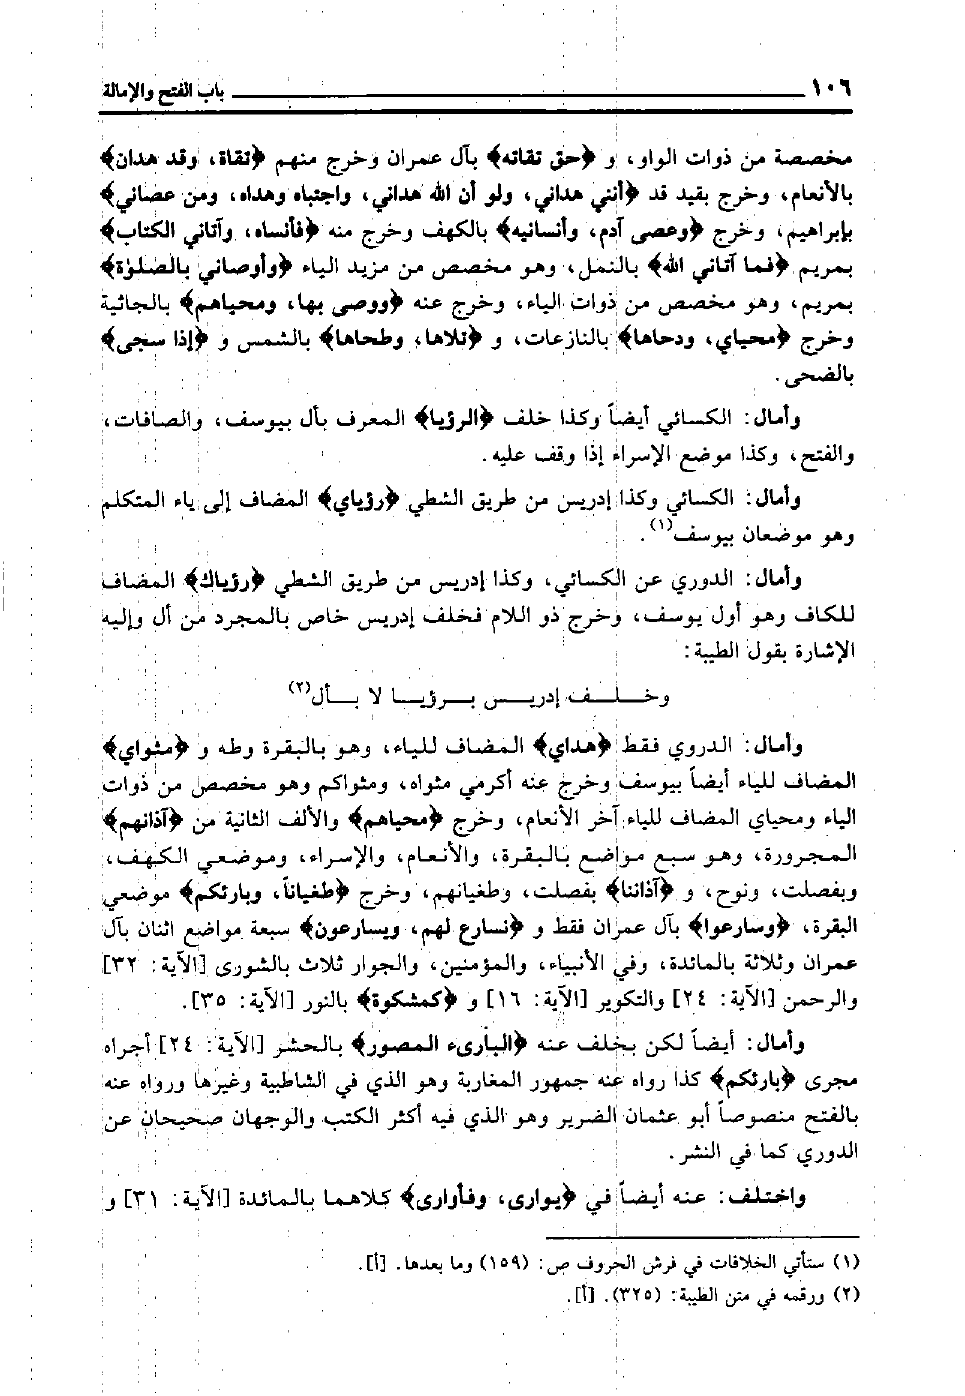 ١٠٦ باب الفتح والإمالة
مخصصة من ذوات الواو، و ﴿حق تقاته﴾ بآل عمران وخرج منهم ﴿تقاة، وقد هدان﴾
بالأنعام، وخرج بقيد قد ﴿أنني هداني، ولو أن الله هداني، واجتباه وهداه، ومن عصاني﴾
بإبراهيم، وخرج ﴿وعصى آدم، وأنسانيه﴾ بالكهف وخرج منه ﴿فأنساه، وآتاني الكتاب﴾
بمريم ﴿فما آتاني الله﴾ بالنمل، وهو مخصص من مزيد الياء ﴿وأوصاني بالصلوٰة﴾
بمريم، وهو مخصص من ذوات الياء، وخرج عنه ﴿ووصى بها، ومحياهم﴾ بالجاثية
وخرج ﴿محياي، ودحاها﴾ بالنازعات، و ﴿تلاها، وطحاها﴾ بالشمس و ﴿إذا سجى﴾
بالضحى.
وأمال: الكسائي أيضاً وكذا خلف ﴿الرؤيا﴾ المعرف بأل بيوسف، والصافات،
والفتح، وكذا موضع الإسراء إذا وقف عليه.
وأمال: الكسائي وكذا إدريس من طريق الشطي ﴿رؤياي﴾ المضاف إلى ياء المتكلم
وهو موضعان بيوسف(١).
وأمال: الدوري عن الكسائي، وكذا إدريس من طريق الشطي ﴿رؤياك﴾ المضاف
للكاف وهو أول يوسف، وخرج ذو اللام فخلف إدريس خاص بالمجرد من أل وإليه
الإشارة بقول الطيبة:
وخـــلـــف إدريـــس بـــرؤيـــا لا بـــأل(٢)
وأمال: الدروي فقط ﴿هداي﴾ المضاف للياء، وهو بالبقرة وطه و ﴿مثواي﴾
المضاف للياء أيضاً بيوسف وخرج عنه أكرمي مثواه، ومثواكم وهو مخصص من ذوات
الياء ومحياي المضاف للياء آخر الأنعام، وخرج ﴿محياهم﴾ والألف الثانية من ﴿آذانهم﴾
المجرورة، وهو سبع مواضع بالبقرة، والأنعام، والإسراء، وموضعي الكهف،
وبفصلت، ونوح، و ﴿آذاننا﴾ بفصلت، وطغيانهم، وخرج ﴿طغياناً، وبارئكم﴾ موضعي
البقرة، ﴿وسارعوا﴾ بآل عمران فقط و ﴿نسارع لهم، ويسارعون﴾ سبعة مواضع اثنان بآل
عمران وثلاثة بالمائدة، وفي الأنبياء، والمؤمنين، والجوار ثلاث بالشورى [الآية: ٣٢]
والرحمن [الآية: ٢٤] والتكوير [الآية: ١٦] و ﴿كمشكوة﴾ بالنور [الآية: ٣٥].
وأمال: أيضاً لكن بخلف عنه ﴿البارىء المصور﴾ بالحشر [الآية: ٢٤] أجراه
مجرى ﴿بارئكم﴾ كذا رواه عنه جمهور المغاربة وهو الذي في الشاطبية وغيرها ورواه عنه
بالفتح منصوصاً أبو عثمان الضرير وهو الذي فيه أكثر الكتب والوجهان صحيحان عن
الدوري كما في النشر.
واختلف: عنه أيضاً في ﴿يوارى، وفأوارى﴾ كلاهما بالمائدة [الآية: ٣١] و
(١) ستأتي الخلافات في فرش الحروف ص: (١٥٩) وما بعدها. [أ].
(٢) ورقمه في متن الطيبة: (٣٢٥). [أ].